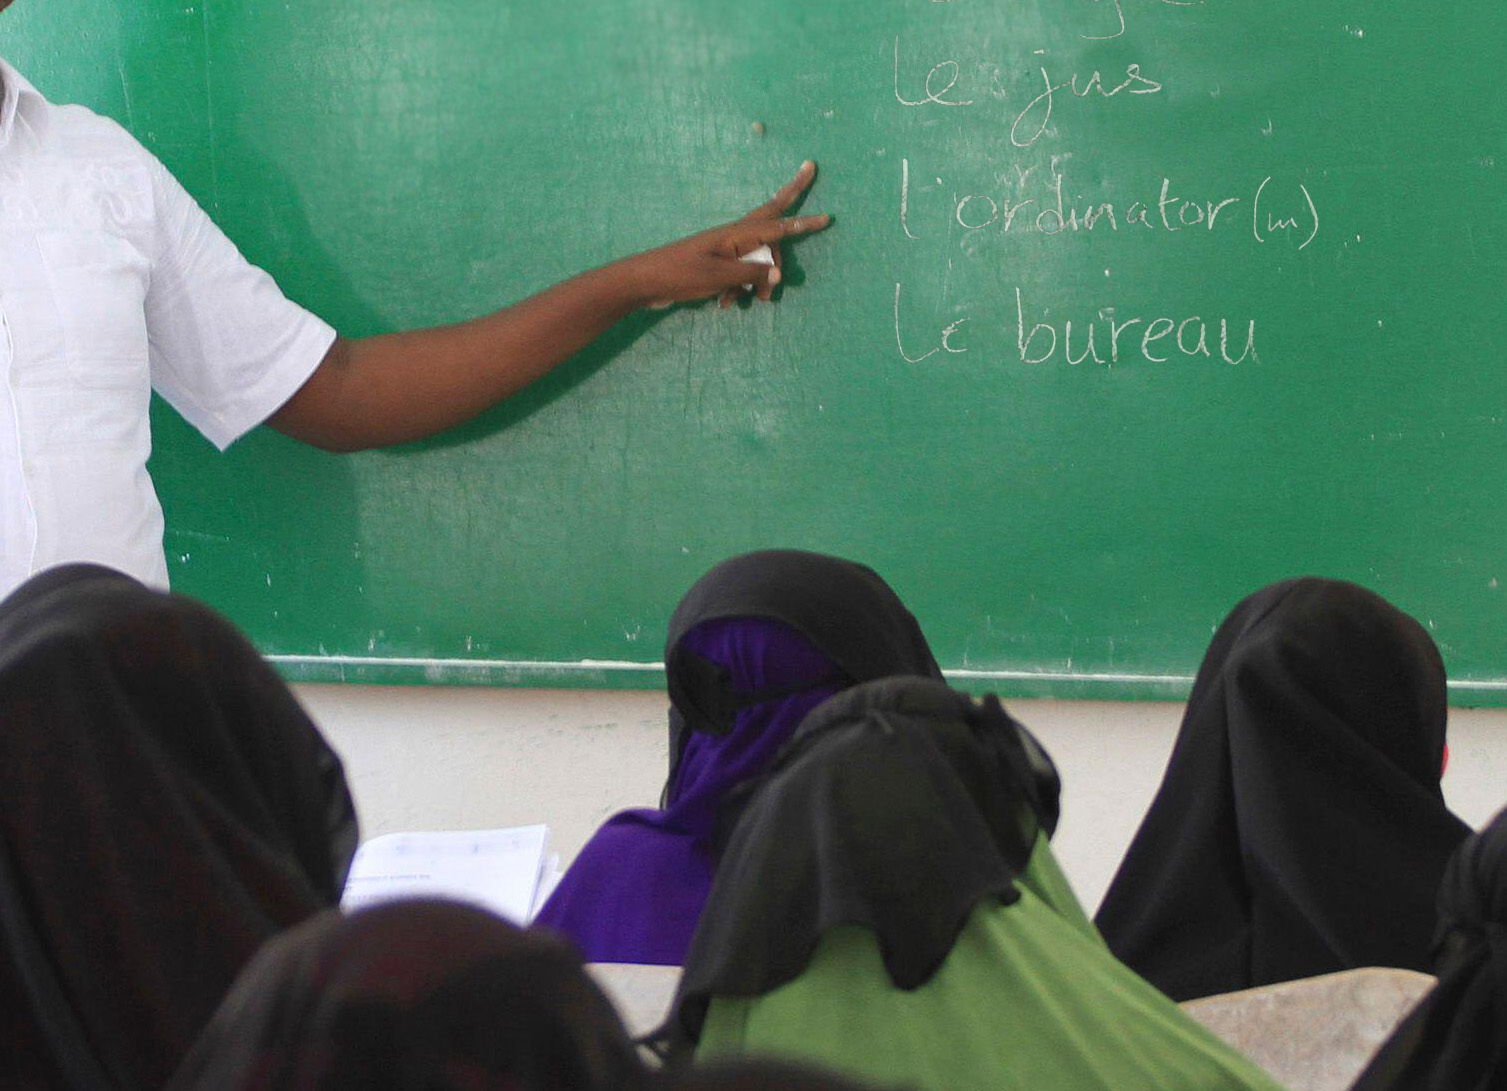 le jus
l'ordinator (m)
le bureau